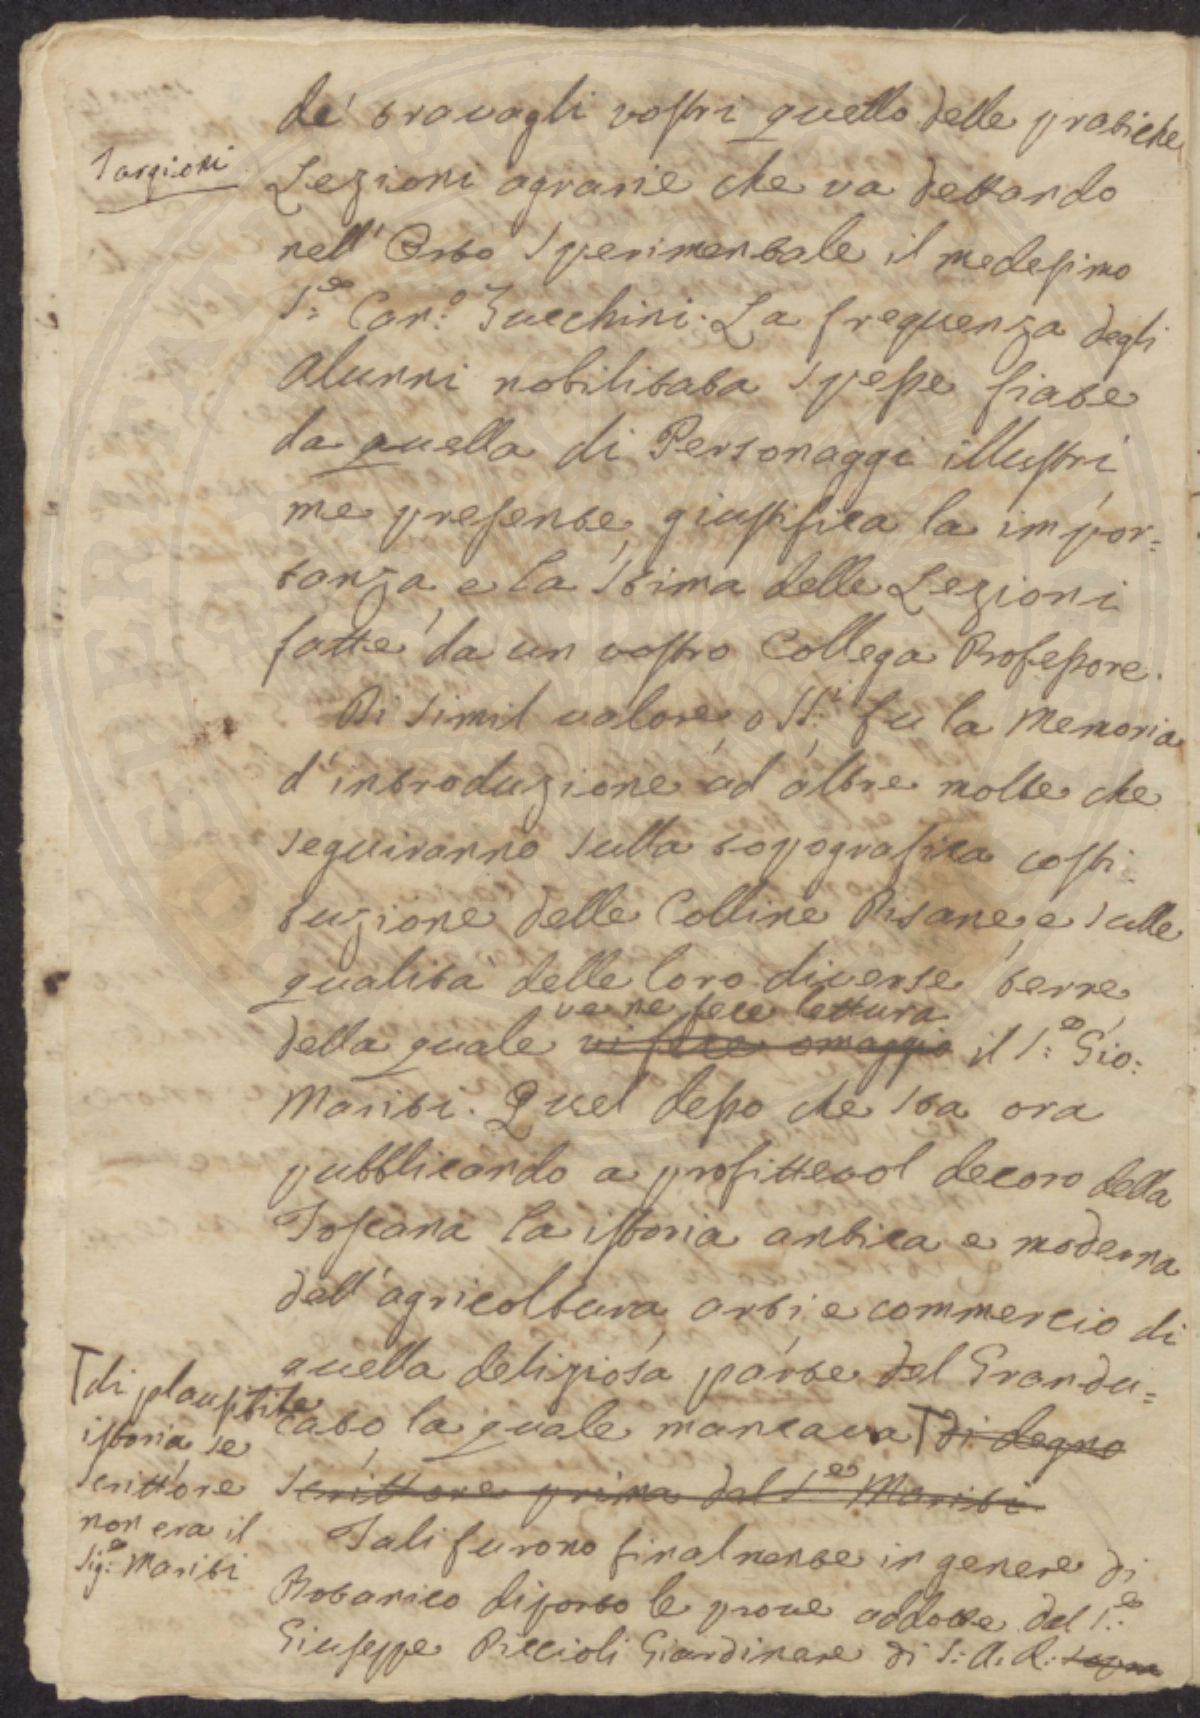 de' travagli vostri quello delle pratiche
Targioni
Lezioni agrarie che va dettando
nell' Orto Sperimentale il medesimo
S.r Can.o Zucchini. La frequenza degli
Alunni nobilitata spesse fiate
da quella di Personaggi illustri
me presente, giustifica la impor=
tanza, e la stima delle Lezioni
fatte da un vostro Collega Professore.
Di simil valore, o SS.i fu la Memoria
d'introduzione ad altre molte che
seguiranno sulla topografica costi=
tuzione delle Colline Pisane, e sulle
qualità delle loro diverse terre,
ve ne fece lettura
della quale vi fece omaggio il S.r Gio:
Mariti. Quel desso che sta ora
pubblicando a profittevol decoro della
Toscana la istoria antica e moderna
dell'agricoltura, arti, e commercio di
quella deliziosa parte del Grandu=
cato la quale mancava di degno
scrittore prima del S.r Mariti.
di plausibile
istoria, se
scrittore
non era il
Sig.r Mariti
Tali furono finalmente in genere di
Botanico disporto le prove addotte dal S.r
Giuseppe Piccioli Giardiniere di S: A: R: